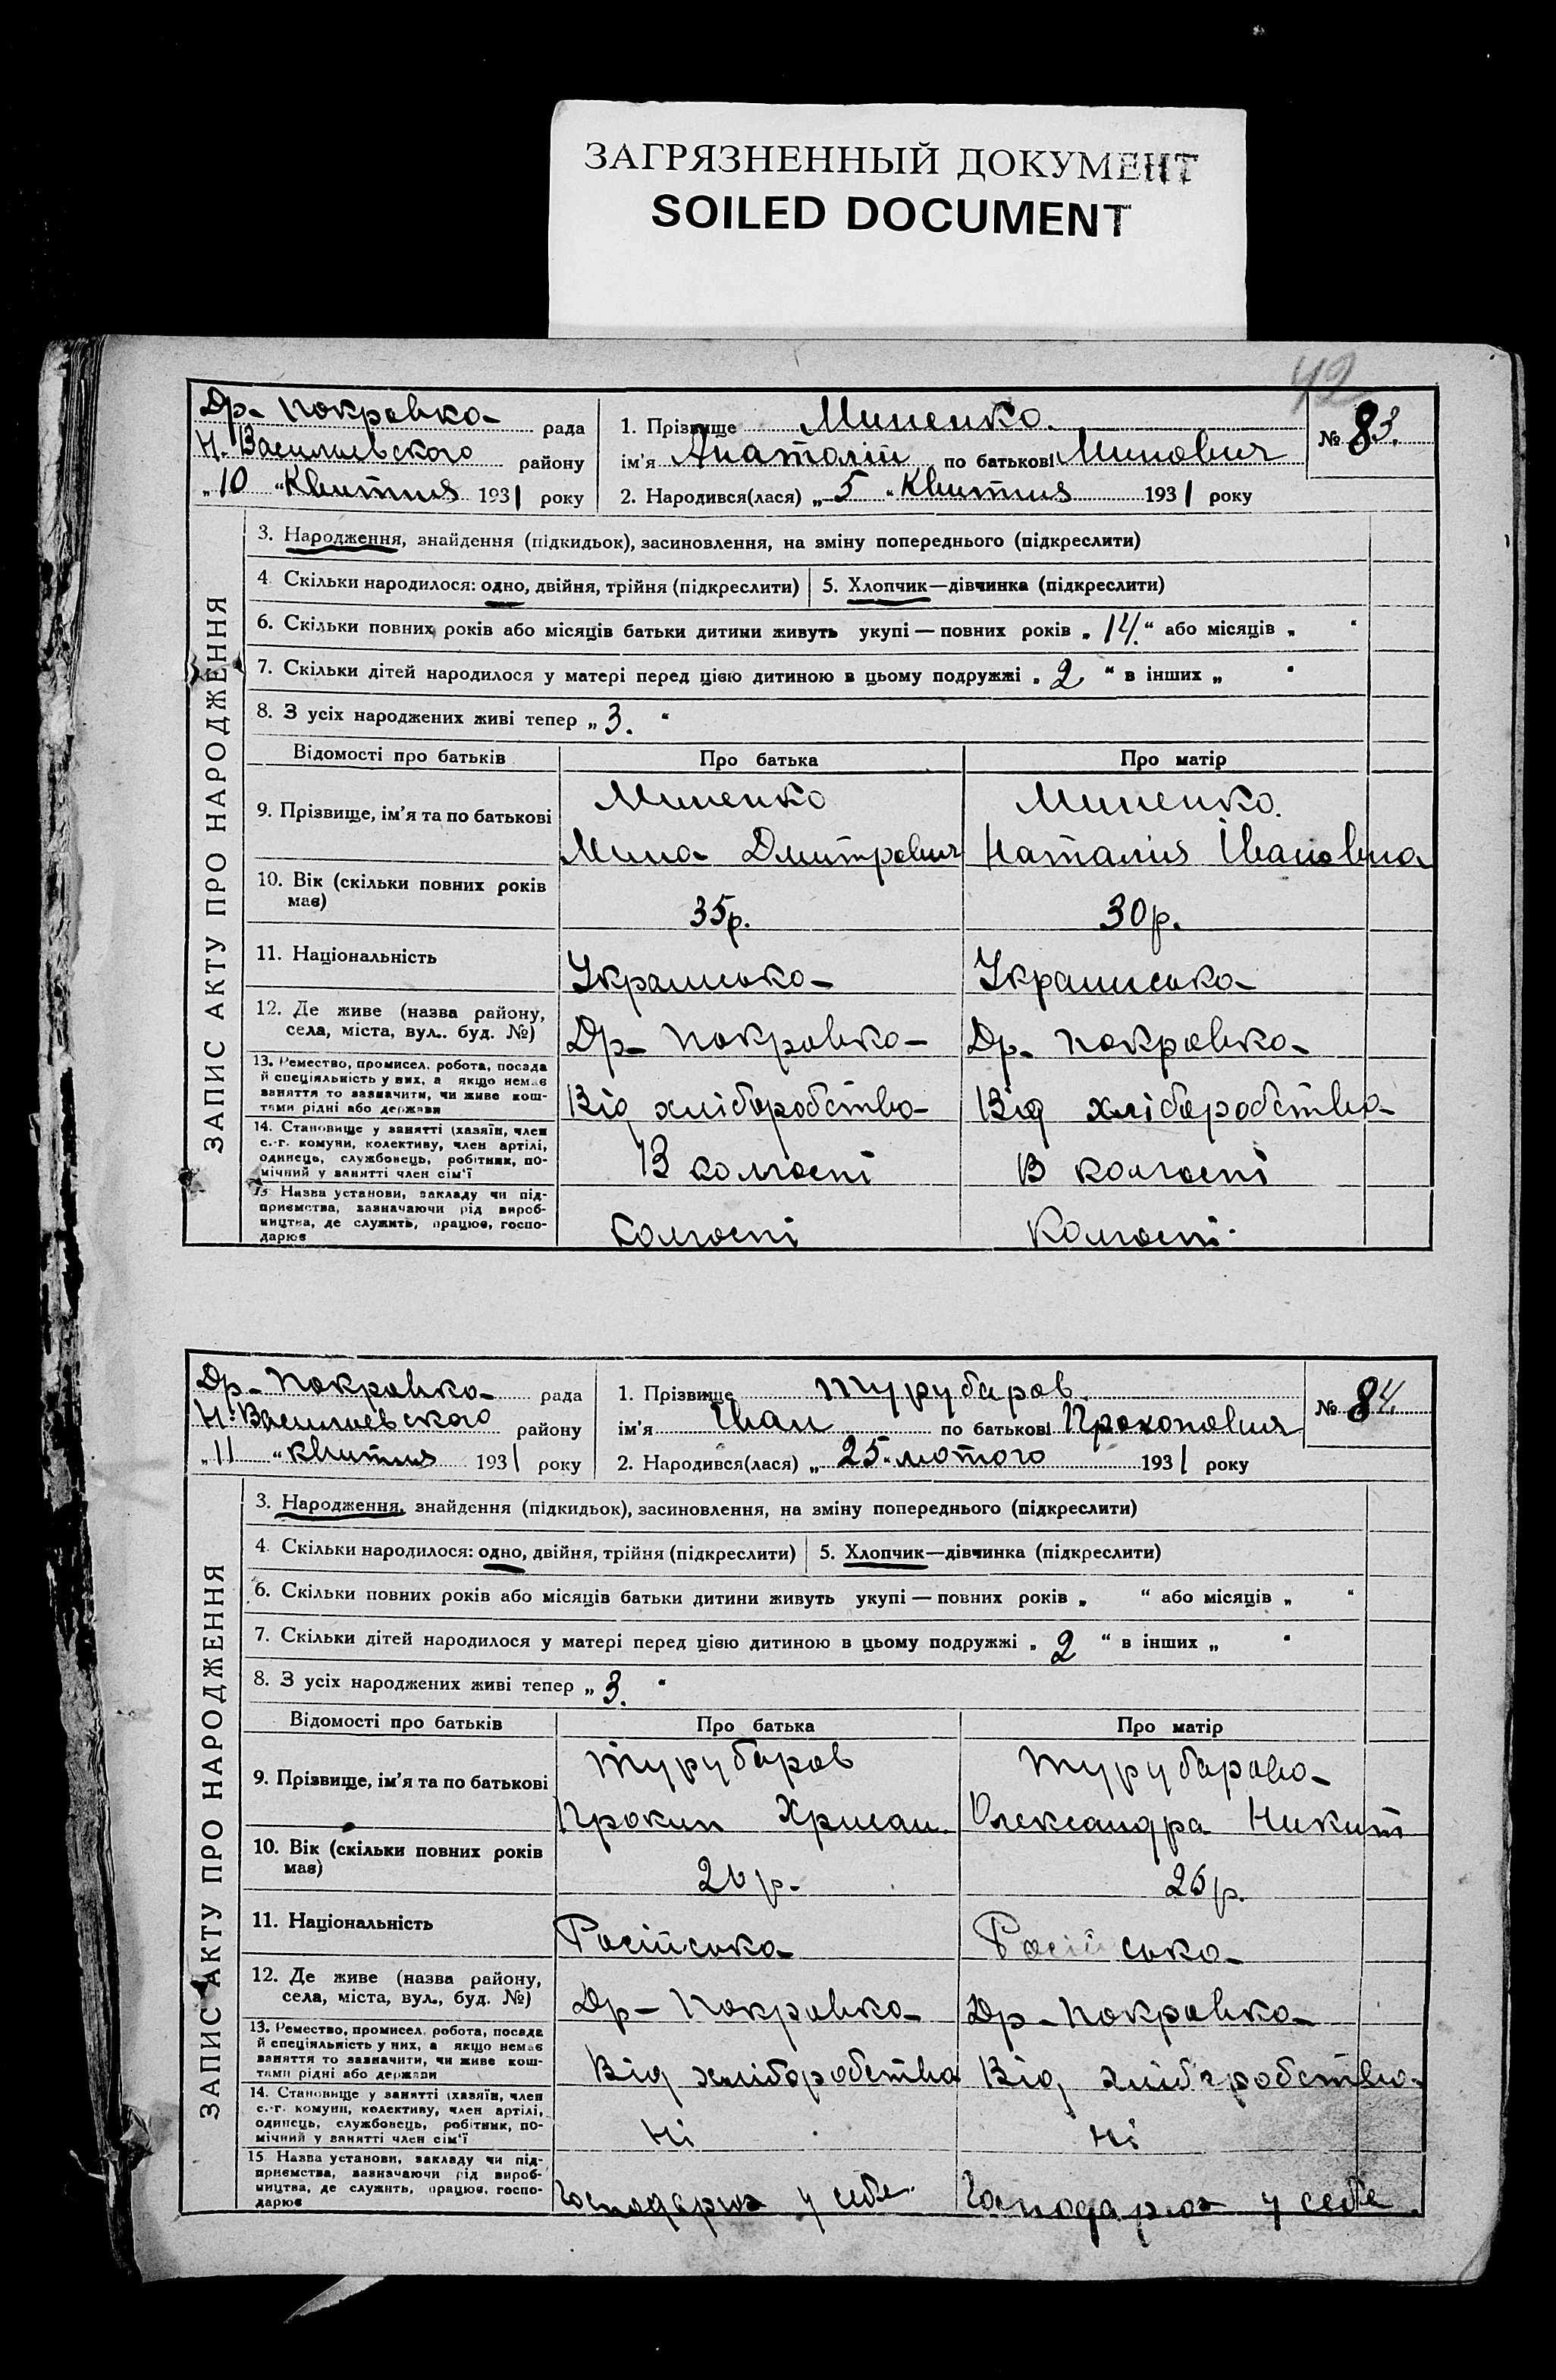 ЗАГРЯЗНЕННЫЙ ДОКУМЕНТ
SOILED DOCUMENT
42
Др-Покровка рада
Н-Васильевского району
„10“ Квитня 1931 року
1. Прізвище Миненко.
ім'я Анатолій по батькові Минович
2. Народився(лася) „5“ Квитня 1931 року
№ 83.
ЗАПИС АКТУ ПРО НАРОДЖЕННЯ
3. Народження, знайдення (підкидьок), засиновлення, на зміну попереднього (підкреслити)
4. Скільки народилося: одно, двійня, трійня (підкреслити) 5. Хлопчик—дівчинка (підкреслити)
6. Скільки повних років або місяців батьки дитини живуть укупі — повних років „14.“ або місяців „ “
7. Скільки дітей народилося у матері перед цією дитиною в цьому подружжі „2“ в інших „ “
8. З усіх народжених живі тепер „3.“
Відомості про батьків Про батька Про матір
9. Прізвище, ім'я та по батькові
Миненко Миненко.
Мина Дмитрович Наталия Івановна
10. Вік (скільки повних років
має)
35р. 30р.
11. Національність
Украінська Украинська
12. Де живе (назва району,
села, міста, вул.. буд. №)
Др-Покровка Др-Покровка
13. Ремество, промисел, робота, посада
й спеціяльність у них, а якщо немає
заняття то зазначити, чи живе кош-
тами рідні або держави
Від хліборобства Від хліборобства
14. Становище у занятті (хазяїн, член
с.-г. комуни, колективу, член артілі,
одинець, службовець, робітник, по-
мічний у занятті член сім'ї
В колгоспі В колгоспі
15 Назва установи, закладу чи під-
приємства, зазначаючи рід вироб-
ництва, де служить, працює, госпо-
дарює
Колгоспі Колгоспі
Др-Покровка рада
Н-Васильевского району
„11“ Квитня 1931 року
1. Прізвище Турубаров.
ім'я Иван по батькові Прокопович
2. Народився(лася) „25“ лютого 1931 року
№ 84.
ЗАПИС АКТУ ПРО НАРОДЖЕННЯ
3. Народження, знайдення (підкидьок), засиновлення, на зміну попереднього (підкреслити)
4. Скільки народилося: одно, двійня, трійня (підкреслити) 5. Хлопчик—дівчинка (підкреслити)
6. Скільки повних років або місяців батьки дитини живуть укупі — повних років „ “ або місяців „ “
7. Скільки дітей народилося у матері перед цією дитиною в цьому подружжі „2“ в інших „ “
8. З усіх народжених живі тепер „3.“
Відомості про батьків Про батька Про матір
9. Прізвище, ім'я та по батькові
Турубаров Турубарова
Прокип Хрисан. Олександра Никит
10. Вік (скільки повних років
має)
11. Національність
Російська Російська
12. Де живе (назва району,
села, міста, вул., буд. №)
Др-Покровка Др-Покровка
13. Ремество, промисел, робота, посада
й спеціяльність у них, а якщо немає
заняття то зазначити, чи живе кош-
тами рідні або держави
Від хліборобства Від хліборобства
14. Становище у занятті (хазяїн, член
с.-г. комуни, колективу, член артілі,
одинець, службовець, робітник, по-
мічний у занятті член сім'ї
Ні Ні
15 Назва установи, закладу чи під-
приємства, зазначаючи рід вироб-
ництва, де служить, працює, госпо-
дарює
у себе. у себе.